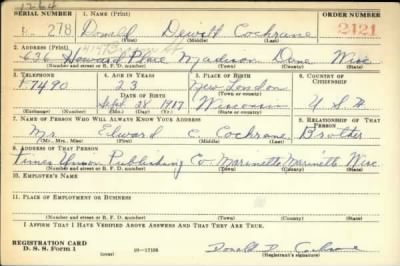 1264
SERIAL NUMBER 1. NAME (Print) ORDER NUMBER
278 Donald Dewitt Cochrane 2121
(First) (Middle) (Last)
2. ADDRESS (Print)
636 Howard Place Madison Dane Wisc
(Number and street or R. F. D. number) (Town) (County) (State)
3. TELEPHONE 4. AGE IN YEARS 5. PLACE OF BIRTH 6. COUNTRY OF CITIZENSHIP
F7490 23 New London
DATE OF BIRTH
Sept 28 1917 Wisconsin U S A
(Exchange) (Number) (Mo.) (Day) (Yr.) (State or country)
7. NAME OF PERSON WHO WILL ALWAYS KNOW YOUR ADDRESS 8. RELATIONSHIP OF THAT PERSON
Mr. Edward C. Cochrane Brother
(Mr., Mrs., Miss) (First) (Middle) (Last)
9. ADDRESS OF THAT PERSON
Times Union Publishing Co Marinette Marinette Wisc
(Number and street or R. F. D. number) (Town) (County) (State)
10. EMPLOYER'S NAME
11. PLACE OF EMPLOYMENT OR BUSINESS
(Number and street or R. F. D. number) (Town) (County) (State)
I AFFIRM THAT I HAVE VERIFIED ABOVE ANSWERS AND THAT THEY ARE TRUE.
REGISTRATION CARD
D. S. S. Form 1 16—17105 Donald D. Cochrane
(over) (Registrant's signature)